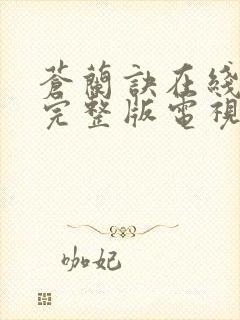 蒼蘭訣在綫
完整版電視
咖妃